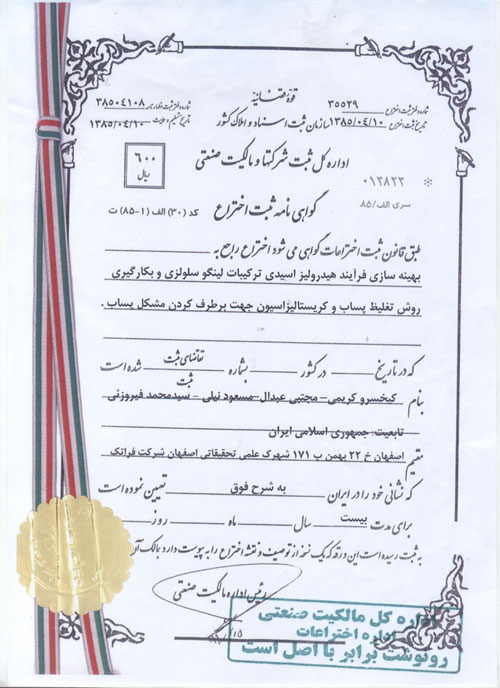 قوهٔ قضائیه
شماره دفتر ثبت اختراع ۳۵۵۲۹
شماره دفتر ثبت اظهارنامه ۳۸۵۰۴۱۰۸
سازمان ثبت اسناد و املاک کشور
تاریخ ثبت اختراع ۱۳۸۵/۰۴/۱۰
تاریخ تسلیم ۱۳۸۵/۰۴/۱۰
اداره کل ثبت شرکتها و مالکیت صنعتی
۶۰۰
ریال
۰۱۳۸۲۲
سری الف/۸۵
گواهی نامه ثبت اختراع
کد (۳۰) الف (۱-۸۵) ت
طبق قانون ثبت اختراعات گواهی می شود اختراع راجع به
بهینه سازی فرآیند هیدرولیز اسیدی ترکیبات لینگو سلولزی و بکارگیری
روش تغلیظ پساب و کریستالیزاسیون جهت برطرف کردن مشکل پساب .
که در تاریخ در کشور بشماره تقاضای ثبت شده است
ثبت
بنام کیخسرو کریمی - مجتبی عبدال - مسعود نیلی - سیدمحمد فیروزئی
تابعیت: جمهوری اسلامی ایران
مقیم اصفهان خ ۲۲ بهمن پ ۱۷۱ شهرک علمی تحقیقاتی اصفهان شرکت فراتک
که نشانی خود را در ایران به شرح فوق تعیین نموده است
برای مدت بیست سال ماه روز
به ثبت رسیده است این ورقه که یک نسخه از توصیف و نقشه اختراع را به پیوست دارد بالک آن
رئیس اداره مالکیت صنعتی
اداره کل مالکیت صنعتی
اداره اختراعات
رونوشت برابر با اصل است